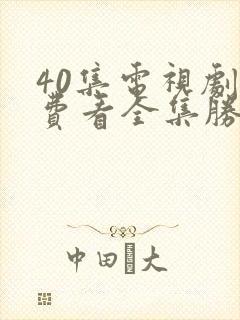 40集電視劇
費看全集勝
中田大